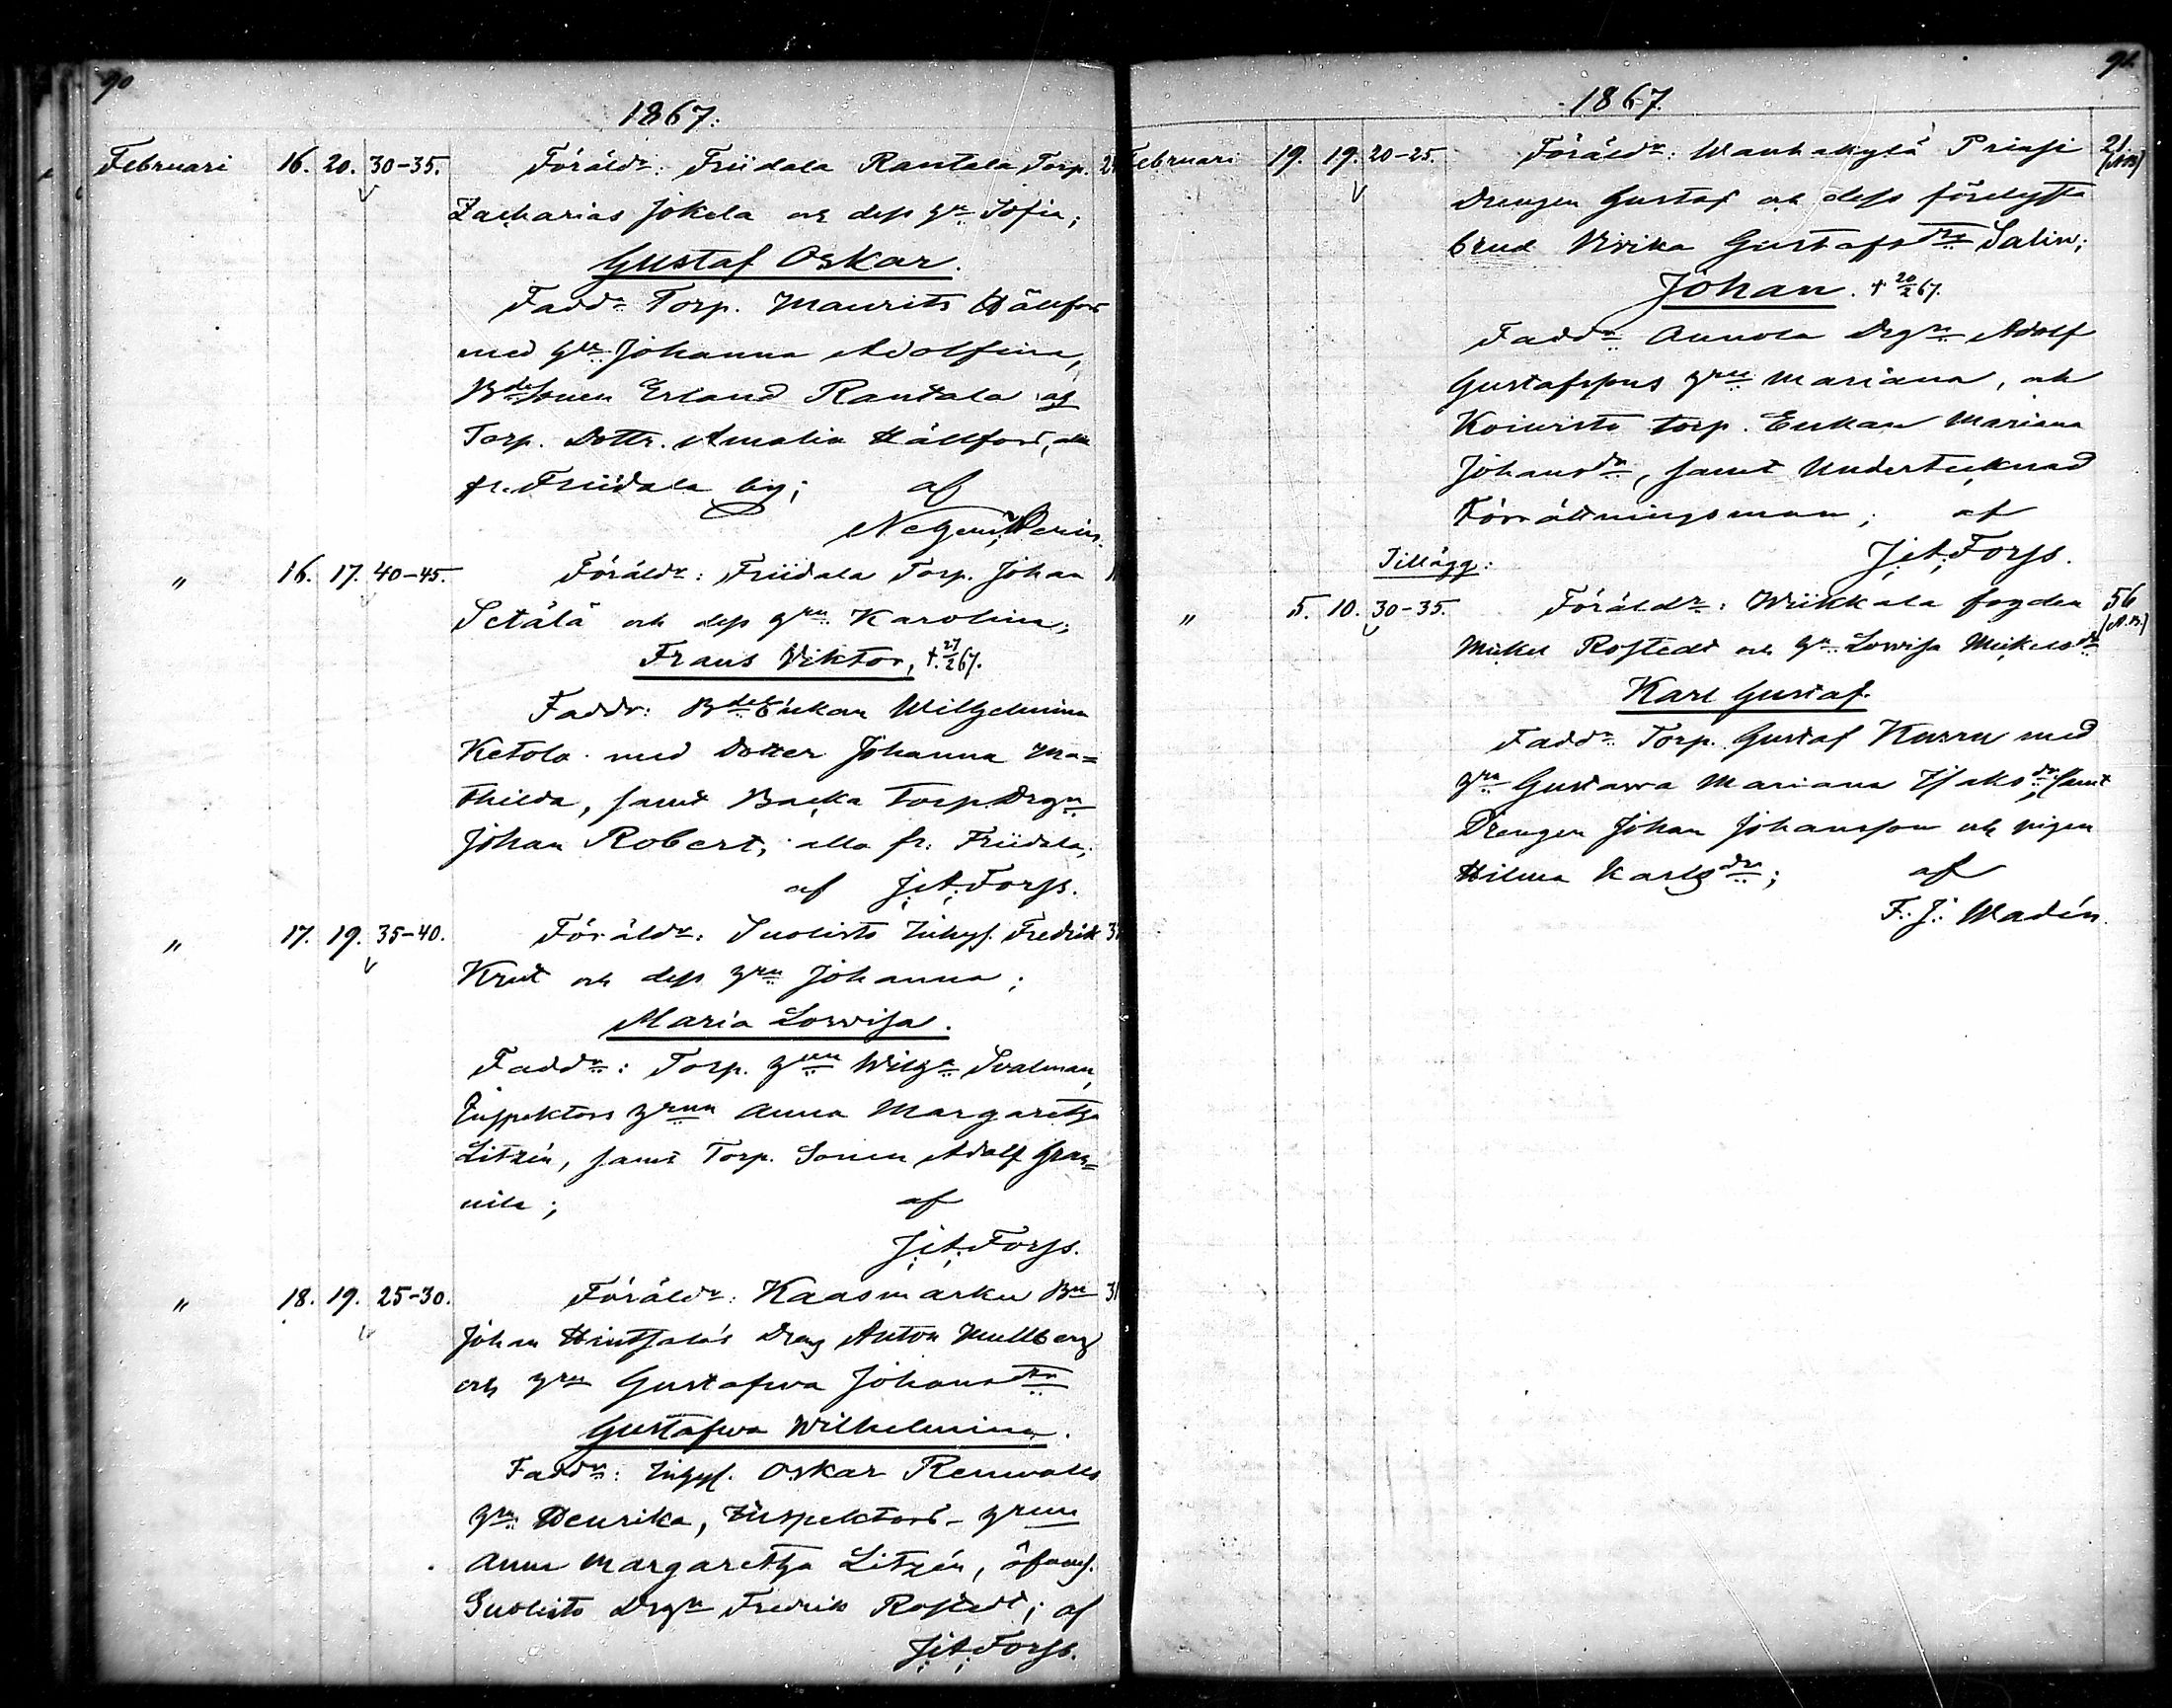 90
1867.
Februari 16. 20. 30-35. Föräldr: Friidala Rantala Torp.
Zacharias Jokela och dess hu Sofia;
Gustaf Oskar.
Faddr Torp. Maurits Hällfors
med hu Johanna Adolfina,
Bdesonen Erland Rantala och
Torp. Dottr. Amalia Hällfors, alla
fr. Friidala by; af
" 16. 17. 40-45. Föräldr: Friidala Torp. Johan
Setälä och dess hru Karolina;
Frans Viktor, †27/2 67.
Faddr: Bde Enkan Wilhelmina
Ketola med dotter Johanna Ma=
thilda, samt Backa Torp. Drgn
Johan Robert, alla fr. Friidala;
af J. A. Forss.
" 17. 19. 35-40. Föräldr: Suolisto Inhys. Fredrik
Krut och dess hru Johanna;
Maria Lovvisa.
Faddr: Torp. hrun Wilha Svalman,
Inspektors hrun Anna Margaretha
Litzén, samt Torp. Sonen Adolf Gran=
nila; af
J. A. Forss.
" 18. 19. 25-30. Föräldr: Kaasmarku Bn 31
Johan Hintsala's Dreng Anton Mullberg
och hru Gustafwa Johansdtr
Gustafwa Wilhelmina.
Faddr: Inhys. Oskar Renwalls
hru Henrika, Inspektors hrun
Anna Margaretha Litzén, öfvans.
Suolisto Drgn Fredrik Rostedt; af
J. A. Forss.
91
1867.
Februari 19. 19. 20-25. Föräldr: Wanhakylä Prinsi 21.
Drengen Gustaf och dess förelofvade
brud Wivika Gustafsdtr Salin;
Johan. †20/2 67.
Faddr Annola Drgn Adolf
Gustafssons hru Mariana, och
Koivisto torp. Enkan Mariana
Johansdr, samt Undertecknad
Förrättningsman; af
J. A. Forss.
Tillägg:
" 5. 10. 30-35. Föräldr: Wiikkala fogden 56
Mickel Rostedt och hu Lovvisa Mickelsdr
Karl Gustaf.
Faddr Torp. Gustaf Kurru med
hru Gustawa Mariana Isaksdr, samt
Drengen Johan Johansson och pigan
Hilma Karlsdr; af
F. J. Wadén.